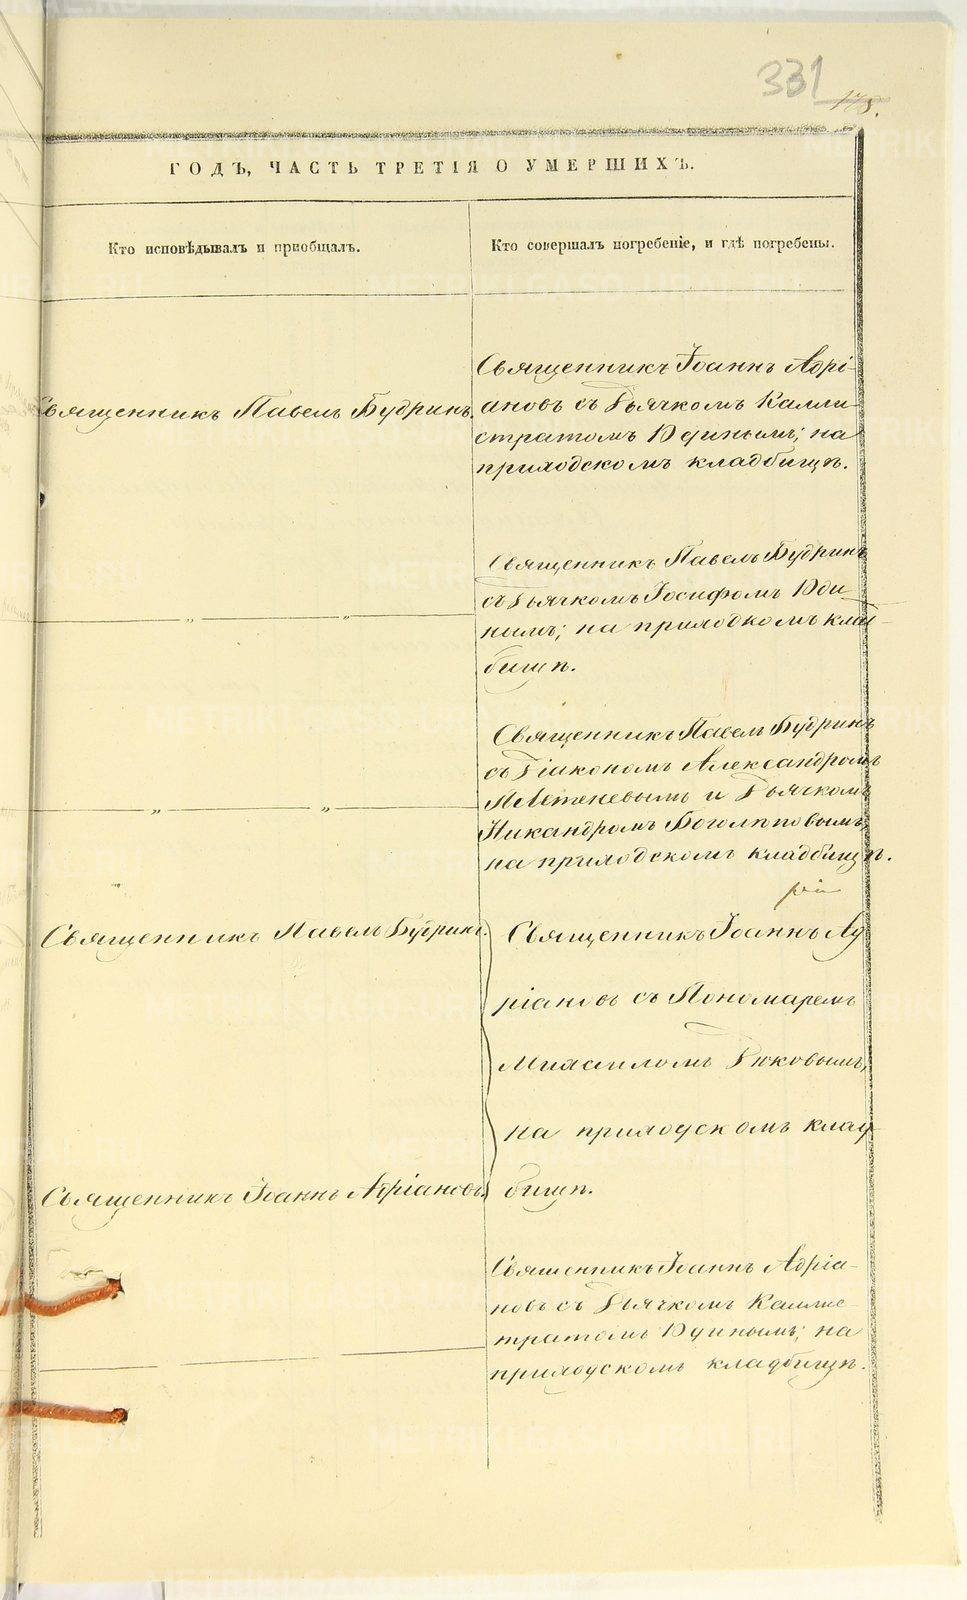 331
178.
ГОДЪ, ЧАСТЬ ТРЕТІЯ О УМЕРШИХЪ.
Кто исповѣдывалъ и приобщалъ.
Кто совершалъ погребеніе, и гдѣ погребены.
Священникъ Павелъ Будринъ.
Священникъ Іоаннъ Адрі-
ановъ съ Дьячкомъ Калли-
стратомъ Юдинымъ; на
приходскомъ кладбищѣ.
„ „
Священникъ Павелъ Будринъ
съ Дьячкомъ Іосифомъ Юди-
нымъ; на приходкомъ клад-
бищѣ.
„ „
Священникъ Павелъ Будринъ
съ Діакономъ Александромъ
и Дьячкомъ
Никандромъ Боголѣповымъ,
на приходскомъ кладбищѣ.
Священникъ Павелъ Будринъ.
Священникъ Іоаннъ Ад
ріановъ съ Пономаремъ
Михаиломъ Дюковымъ,
на приходскомъ клад
бищѣ.
Священникъ Іоаннъ Адріановъ.
Священникъ Іоаннъ Адріа-
новъ съ Дьячкомъ Калли-
стратомъ Юдинымъ; на
приходскомъ кладбищѣ.